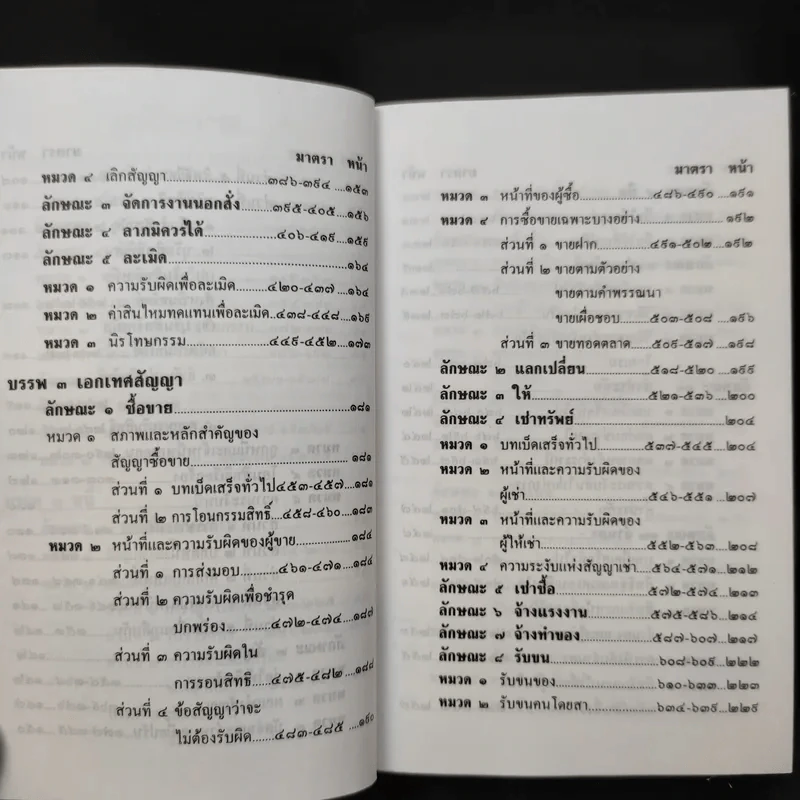 มาตรา หน้า
หมวด ๔ เลิกสัญญา........๓๘๖-๓๙๔....๑๕๓
ลักษณะ ๓ จัดการงานนอกสั่ง........๓๙๕-๔๐๕....๑๕๖
ลักษณะ ๔ ลาภมิควรได้........๔๐๖-๔๑๙....๑๕๙
ลักษณะ ๕ ละเมิด........๑๖๔
หมวด ๑ ความรับผิดเพื่อละเมิด........๔๒๐-๔๓๗....๑๖๔
หมวด ๒ ค่าสินไหมทดแทนเพื่อละเมิด....๔๓๘-๔๔๘....๑๖๙
หมวด ๓ นิรโทษกรรม........๔๔๙-๔๕๒....๑๗๓
บรรพ ๓ เอกเทศสัญญา
ลักษณะ ๑ ซื้อขาย........๑๘๑
หมวด ๑ สภาพและหลักสำคัญของ
สัญญาซื้อขาย........๑๘๑
ส่วนที่ ๑ บทเบ็ดเสร็จทั่วไป๔๕๓-๔๕๗....๑๘๑
ส่วนที่ ๒ การโอนกรรมสิทธิ์....๔๕๘-๔๖๐....๑๘๓
หมวด ๒ หน้าที่และความรับผิดของผู้ขาย........๑๘๔
ส่วนที่ ๑ การส่งมอบ........๔๖๑-๔๗๑....๑๘๔
ส่วนที่ ๒ ความรับผิดเพื่อชำรุด
บกพร่อง........๔๗๒-๔๗๔....๑๘๗
ส่วนที่ ๓ ความรับผิดใน
การรอนสิทธิ........๔๗๕-๔๘๒....๑๘๘
ส่วนที่ ๔ ข้อสัญญาว่าจะ
ไม่ต้องรับผิด........๔๘๓-๔๘๕....๑๙๐
มาตรา หน้า
หมวด ๓ หน้าที่ของผู้ซื้อ........๔๘๖-๔๙๐....๑๙๑
หมวด ๔ การซื้อขายเฉพาะบางอย่าง........๑๙๒
ส่วนที่ ๑ ขายฝาก........๔๙๑-๕๐๒....๑๙๒
ส่วนที่ ๒ ขายตามตัวอย่าง
ขายตามคำพรรณนา
ขายเผื่อชอบ........๕๐๓-๕๐๘....๑๙๖
ส่วนที่ ๓ ขายทอดตลาด........๕๐๙-๕๑๗....๑๙๘
ลักษณะ ๒ แลกเปลี่ยน........๕๑๘-๕๒๐....๑๙๙
ลักษณะ ๓ ให้........๕๒๑-๕๓๖....๒๐๐
ลักษณะ ๔ เช่าทรัพย์........๒๐๔
หมวด ๑ บทเบ็ดเสร็จทั่วไป........๕๓๗-๕๔๕....๒๐๔
หมวด ๒ หน้าที่และความรับผิดของ
ผู้เช่า........๕๔๖-๕๕๑....๒๐๗
หมวด ๓ หน้าที่และความรับผิดของ
ผู้ให้เช่า........๕๕๒-๕๖๓....๒๐๘
หมวด ๔ ความระงับแห่งสัญญาเช่า........๕๖๔-๕๗๑....๒๑๒
ลักษณะ ๕ เช่าซื้อ........๕๗๒-๕๗๔....๒๑๓
ลักษณะ ๖ จ้างแรงงาน........๕๗๕-๕๘๖....๒๑๔
ลักษณะ ๗ จ้างทำของ........๕๘๗-๖๐๗....๒๑๗
ลักษณะ ๘ รับขน........๖๐๘-๖๐๙....๒๒๒
หมวด ๑ รับขนของ........๖๑๐-๖๓๓....๒๒๓
หมวด ๒ รับขนคนโดยสา........๖๓๔-๖๓๙....๒๒๙